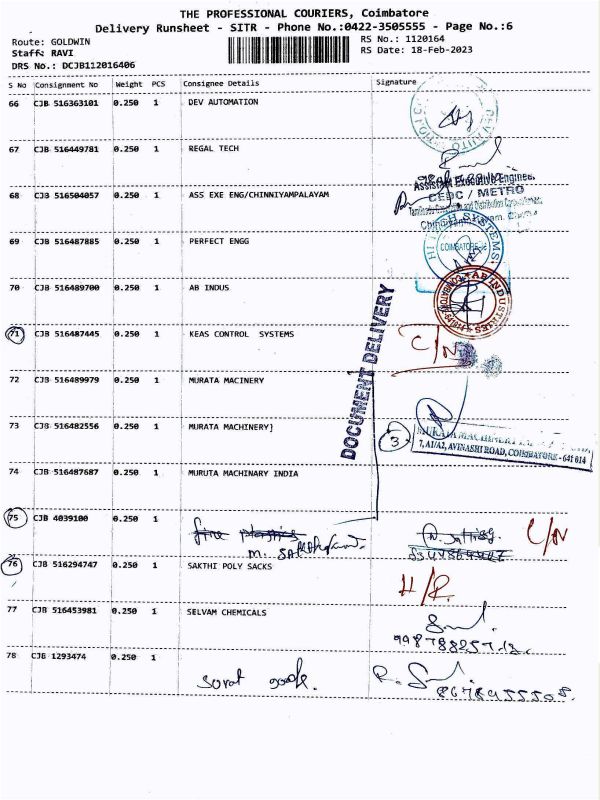 THE PROFESSIONAL COURIERS, Coimbatore
Delivery Runsheet - SITR - Phone No.:0422-3505555 - Page No.:6
Route: GOLDWIN
RS No.: 1120164
Staff: RAVI
RS Date: 18-Feb-2023
DRS No.: DCJB112016406
S No Consignment No Weight PCS Consignee Details Signature
66 CJB 516363101 0.250 1 DEV AUTOMATION
67 CJB 516449781 0.250 1 REGAL TECH
Assistant Executive Engineer,
CEDC / METRO
68 CJB 516504057 0.250 1 ASS EXE ENG/CHINNIYAMPALAYAM
69 CJB 516487885 0.250 1 PERFECT ENGG
HI TECH SYSTEMS
COIMBATORE
70 CJB 516489700 0.250 1 AB INDUS
AB INDUSTRIES
71 CJB 516487445 0.250 1 KEAS CONTROL SYSTEMS
C/N
DOCUMENT DELIVERY
72 CJB 516489979 0.250 1 MURATA MACINERY
73 CJB 516482556 0.250 1 MURATA MACHINERY]
3
7, A1/A2, AVINASHI ROAD, COIMBATORE - 641 014
74 CJB 516487687 0.250 1 MURUTA MACHINARY INDIA
75 CJB 4039100 0.250 1
C/N
76 CJB 516294747 0.250 1 SAKTHI POLY SACKS
H/R
77 CJB 516453981 0.250 1 SELVAM CHEMICALS
78 CJB 1293474 0.250 1